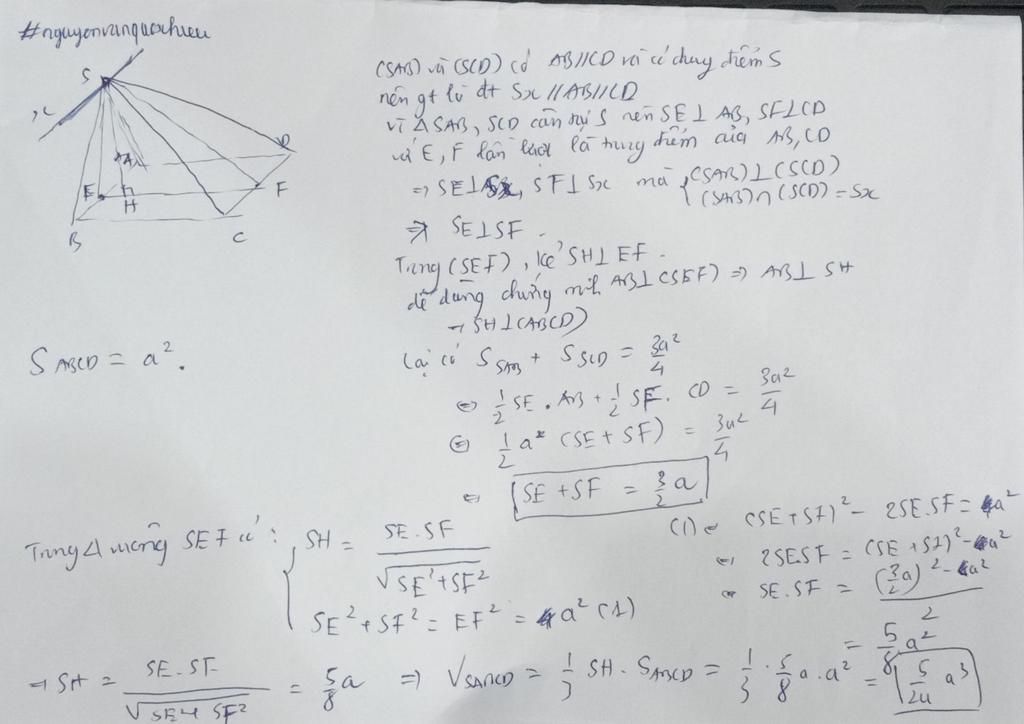 #nguyenvanquochieu
S
x
A
D
E
H
F
B
C
(SAB) và (SCD) có AB//CD và có chung điểm S
nên gt là đt Sx //AB//CD
Vì Δ SAB, SCD cân tại S nên SE⊥ AB, SF⊥CD
với E, F lần lượt là trung điểm của AB, CD
=> SE⊥Sx, SF⊥Sx mà { (SAB)⊥(SCD)
(SAB)∩(SCD) = Sx
=> SE⊥SF.
Trong (SEF), kẻ SH⊥EF.
dễ dàng chứng minh AB⊥(SEF) => AB⊥SH
→ SH⊥(ABCD)
S ABCD = a².
Lại có S SAB + S SCD = 3a²/4
⇔ 1/2 SE . AB + 1/2 SF. CD = 3a²/4
⇔ 1/2 a (SE + SF) = 3a²/4
⇔ SE + SF = 3/2 a
Trong Δ vuông SEF có: { SH = SE.SF / √SE²+SF²
SE² + SF² = EF² = a² (1)
(1) ⇔ (SE + SF)² - 2SE.SF = a²
⇔ 2SE.SF = (SE + SF)² - a²
⇔ SE.SF = ((3/2 a)² - a²) / 2
= 5/8 a²
→ SH = SE.SF / √SE²+SF² = 5/8 a => V SABCD = 1/3 SH . S ABCD = 1/3 . 5/8 a . a² = 5/24 a³